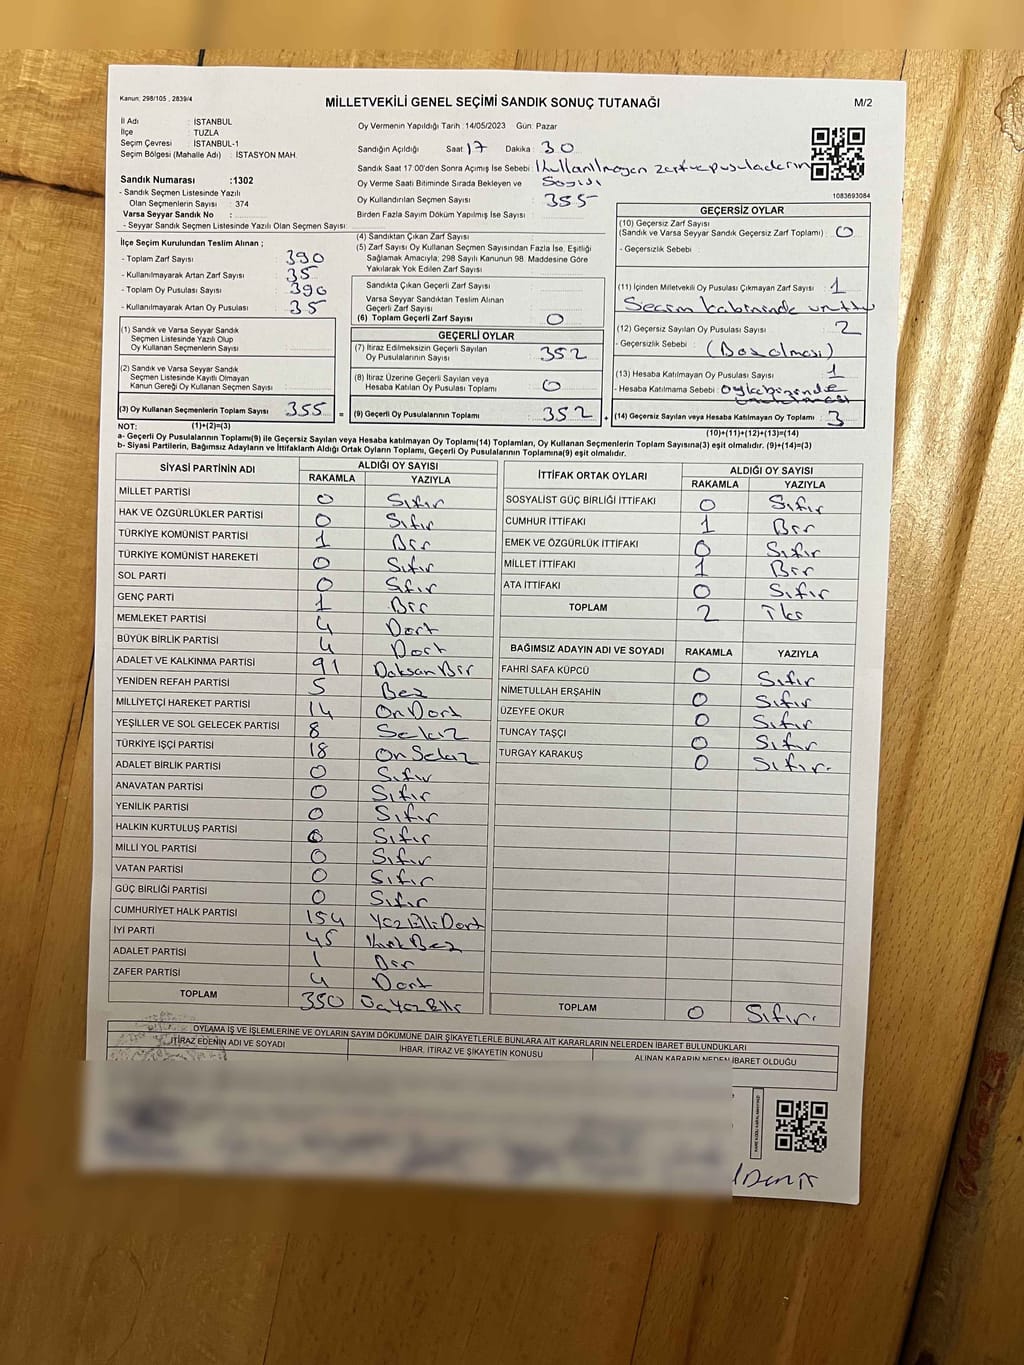 Kanun: 298/105 , 2839/4
MİLLETVEKİLİ GENEL SEÇİMİ SANDIK SONUÇ TUTANAĞI
M/2
İl Adı : İSTANBUL
İlçe : TUZLA
Seçim Çevresi : İSTANBUL-1
Seçim Bölgesi (Mahalle Adı) : İSTASYON MAH.
Sandık Numarası :1302
- Sandık Seçmen Listesinde Yazılı
Olan Seçmenlerin Sayısı : 374
Varsa Seyyar Sandık No :
- Seyyar Sandık Seçmen Listesinde Yazılı Olan Seçmen Sayısı:
Oy Vermenin Yapıldığı Tarih :14/05/2023 Gün: Pazar
Sandığın Açıldığı Saat : 17 Dakika : 30
Sandık Saat 17.00'den Sonra Açımış İse Sebebi : Kullanılmayan zarf ve pusulaların
Sayısı
Oy Verme Saati Bitiminde Sırada Bekleyen ve
Oy Kullandırılan Seçmen Sayısı : 355
Birden Fazla Sayım Döküm Yapılmış İse Sayısı :
1083693084
İlçe Seçim Kurulundan Teslim Alınan ;
- Toplam Zarf Sayısı : 390
- Kullanılmayarak Artan Zarf Sayısı : 35
- Toplam Oy Pusulası Sayısı : 390
- Kullanılmayarak Artan Oy Pusulası : 35
(1) Sandık ve Varsa Seyyar Sandık
Seçmen Listesinde Yazılı Olup
Oy Kullanan Seçmenlerin Sayısı :
(2) Sandık ve Varsa Seyyar Sandık
Seçmen Listesinde Kayıtlı Olmayan
Kanun Gereği Oy Kullanan Seçmen Sayısı :
(3) Oy Kullanan Seçmenlerin Toplam Sayısı : 355 =
(1)+(2)=(3)
(4) Sandıktan Çıkan Zarf Sayısı :
(5) Zarf Sayısı Oy Kullanan Seçmen Sayısından Fazla İse, Eşitliği
Sağlamak Amacıyla; 298 Sayılı Kanunun 98. Maddesine Göre
Yakılarak Yok Edilen Zarf Sayısı :
Sandıkta Çıkan Geçerli Zarf Sayısı :
Varsa Seyyar Sandıktan Teslim Alınan
Geçerli Zarf Sayısı :
(6) Toplam Geçerli Zarf Sayısı : 0
GEÇERLİ OYLAR
(7) İtiraz Edilmeksizin Geçerli Sayılan
Oy Pusulalarının Sayısı : 352
(8) İtiraz Üzerine Geçerli Sayılan veya
Hesaba Katılan Oy Pusulası Toplamı : 0
(9) Geçerli Oy Pusulalarının Toplamı : 352 +
GEÇERSİZ OYLAR
(10) Geçersiz Zarf Sayısı
(Sandık ve Varsa Seyyar Sandık Geçersiz Zarf Toplamı) : 0
- Geçersizlik Sebebi :
(11) İçinden Milletvekili Oy Pusulası Çıkmayan Zarf Sayısı : 1
Seçim kabininde
(12) Geçersiz Sayılan Oy Pusulası Sayısı : 2
- Geçersizlik Sebebi : (Boş olması)
(13) Hesaba Katılmayan Oy Pusulası Sayısı : 1
- Hesaba Katılmama Sebebi :
(14) Geçersiz Sayılan veya Hesaba Katılmayan Oy Toplamı : 3
(10)+(11)+(12)+(13)=(14)
NOT:
a- Geçerli Oy Pusulalarının Toplamı(9) ile Geçersiz Sayılan veya Hesaba katılmayan Oy Toplamı(14) Toplamları, Oy Kullanan Seçmenlerin Toplam Sayısına(3) eşit olmalıdır. (9)+(14)=(3)
b- Siyasi Partilerin, Bağımsız Adayların ve İttifakların Aldığı Ortak Oyların Toplamı, Geçerli Oy Pusulalarının Toplamına(9) eşit olmalıdır.
SİYASİ PARTİNİN ADI ALDIĞI OY SAYISI
RAKAMLA YAZIYLA
MİLLET PARTİSİ 0 Sıfır
HAK VE ÖZGÜRLÜKLER PARTİSİ 0 Sıfır
TÜRKİYE KOMÜNİST PARTİSİ 1 Bir
TÜRKİYE KOMÜNİST HAREKETİ 0 Sıfır
SOL PARTİ 0 Sıfır
GENÇ PARTİ 1 Bir
MEMLEKET PARTİSİ 4 Dört
BÜYÜK BİRLİK PARTİSİ 4 Dört
ADALET VE KALKINMA PARTİSİ 91 Doksan Bir
YENİDEN REFAH PARTİSİ 5 Beş
MİLLİYETÇİ HAREKET PARTİSİ 14 On Dört
YEŞİLLER VE SOL GELECEK PARTİSİ 8 Sekiz
TÜRKİYE İŞÇİ PARTİSİ 18 On Sekiz
ADALET BİRLİK PARTİSİ 0 Sıfır
ANAVATAN PARTİSİ 0 Sıfır
YENİLİK PARTİSİ 0 Sıfır
HALKIN KURTULUŞ PARTİSİ 0 Sıfır
MİLLİ YOL PARTİSİ 0 Sıfır
VATAN PARTİSİ 0 Sıfır
GÜÇ BİRLİĞİ PARTİSİ 0 Sıfır
CUMHURİYET HALK PARTİSİ 154 Yüz Elli Dört
İYİ PARTİ 45 Kırk Beş
ADALET PARTİSİ 1 Bir
ZAFER PARTİSİ 4 Dört
TOPLAM 350 Üç Yüz Elli
İTTİFAK ORTAK OYLARI ALDIĞI OY SAYISI
RAKAMLA YAZIYLA
SOSYALİST GÜÇ BİRLİĞİ İTTİFAKI 0 Sıfır
CUMHUR İTTİFAKI 1 Bir
EMEK VE ÖZGÜRLÜK İTTİFAKI 0 Sıfır
MİLLET İTTİFAKI 1 Bir
ATA İTTİFAKI 0 Sıfır
TOPLAM 2 İki
BAĞIMSIZ ADAYIN ADI VE SOYADI RAKAMLA YAZIYLA
FAHRİ SAFA KÜPCÜ 0 Sıfır
NİMETULLAH ERŞAHİN 0 Sıfır
ÜZEYFE OKUR 0 Sıfır
TUNCAY TAŞÇI 0 Sıfır
TURGAY KARAKUŞ 0 Sıfır.
TOPLAM 0 Sıfır.
OYLAMA İŞ VE İŞLEMLERİNE VE OYLARIN SAYIM DÖKÜMÜNE DAİR ŞİKAYETLERLE BUNLARA AİT KARARLARIN NELERDEN İBARET BULUNDUKLARI
İTİRAZ EDENİN ADI VE SOYADI
İHBAR, İTİRAZ VE ŞİKAYETİN KONUSU
ALINAN KARARIN NEDEN İBARET OLDUĞU